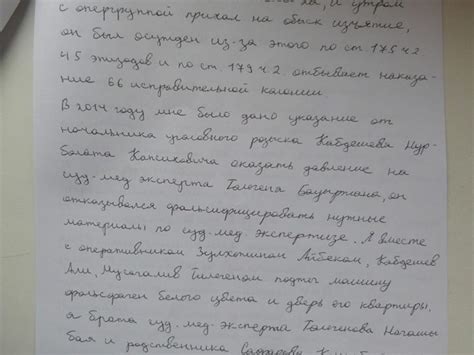 и утром
с опергруппой приехал на обыск изъятие,
он был осужден из-за этого по ст. 175 ч 2
45 эпизодов и по ст. 179 ч. 2. отбывает наказа-
ние 66 исправительной колонии
В 2014 году мне было дано указание от
начальника уголовного розыска Кабдешева Нур-
болата Капсиховича оказать давление на
суд. мед эксперта Толегена Бауыржана, он
отказывался фальсифицировать нужные
материалы по суд. мед. экспертизе. Я вместе
с оперативником Зулхотином Айбеком, Кабдешев
Али, Мусагалив Тилегеном машину
белого цвета и дверь его квартиры,
а брата суд. мед. эксперта Толегенова
бая и родственника